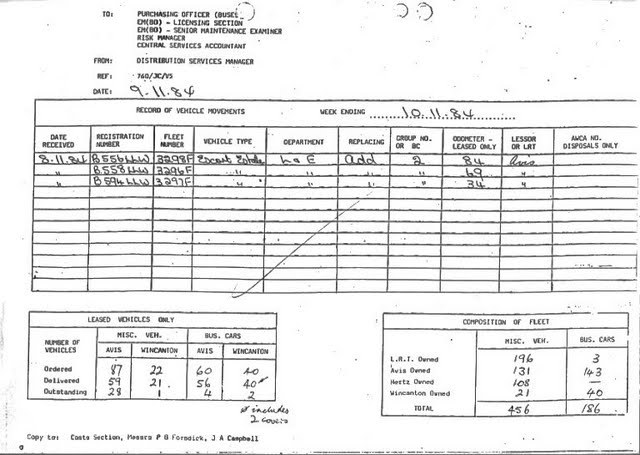 TO: PURCHASING OFFICER (BUSES)
EM(BO) - LICENSING SECTION
EM(BO) - SENIOR MAINTENANCE EXAMINER
RISK MANAGER
CENTRAL SERVICES ACCOUNTANT
FROM: DISTRIBUTION SERVICES MANAGER
REF: 760/JC/VS
DATE: 9.11.84
RECORD OF VEHICLE MOVEMENTS WEEK ENDING 10.11.84
DATE RECEIVED REGISTRATION NUMBER FLEET NUMBER VEHICLE TYPE DEPARTMENT REPLACING GROUP NO. OR BC ODOMETER - LEASED ONLY LESSOR OR LRT AWCA NO. DISPOSALS ONLY
8.11.84 B556LLW 3298F Escort Estate L & E Add 2 84 Avis
" B558LLW 3296F " " " " " 69 "
" B594LLW 3297F " " " " " 34 "
LEASED VEHICLES ONLY
NUMBER OF VEHICLES MISC. VEH. BUS. CARS
AVIS WINCANTON AVIS WINCANTON
Ordered 87 22 60 40
Delivered 59 21 56 40*
Outstanding 28 1 4 2
* includes
2 covers
COMPOSITION OF FLEET
MISC. VEH. BUS. CARS
L.R.T. Owned 196 3
Avis Owned 131 143
Hertz Owned 108 —
Wincanton Owned 21 40
TOTAL 456 186
Copy to: Costs Section, Messrs P G J A Campbell